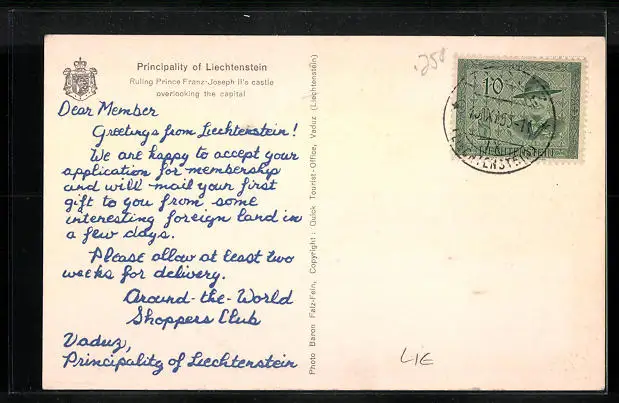 Principality of Liechtenstein
Ruling Prince Franz-Joseph II's castle
overlooking the capital
Dear Member
Greetings from Liechtenstein!
We are happy to accept your
application for membership
and will mail your first
gift to you from some
interesting foreign land in
a few days.
Please allow at least two
weeks for delivery.
Around-the-World
Shoppers Club
Vaduz,
Principality of Liechtenstein
Photo Baron Falz-Fein, Copyright: Quick Tourist-Office, Vaduz (Liechtenstein)
.250
10
LIECHTENSTEIN
LIE